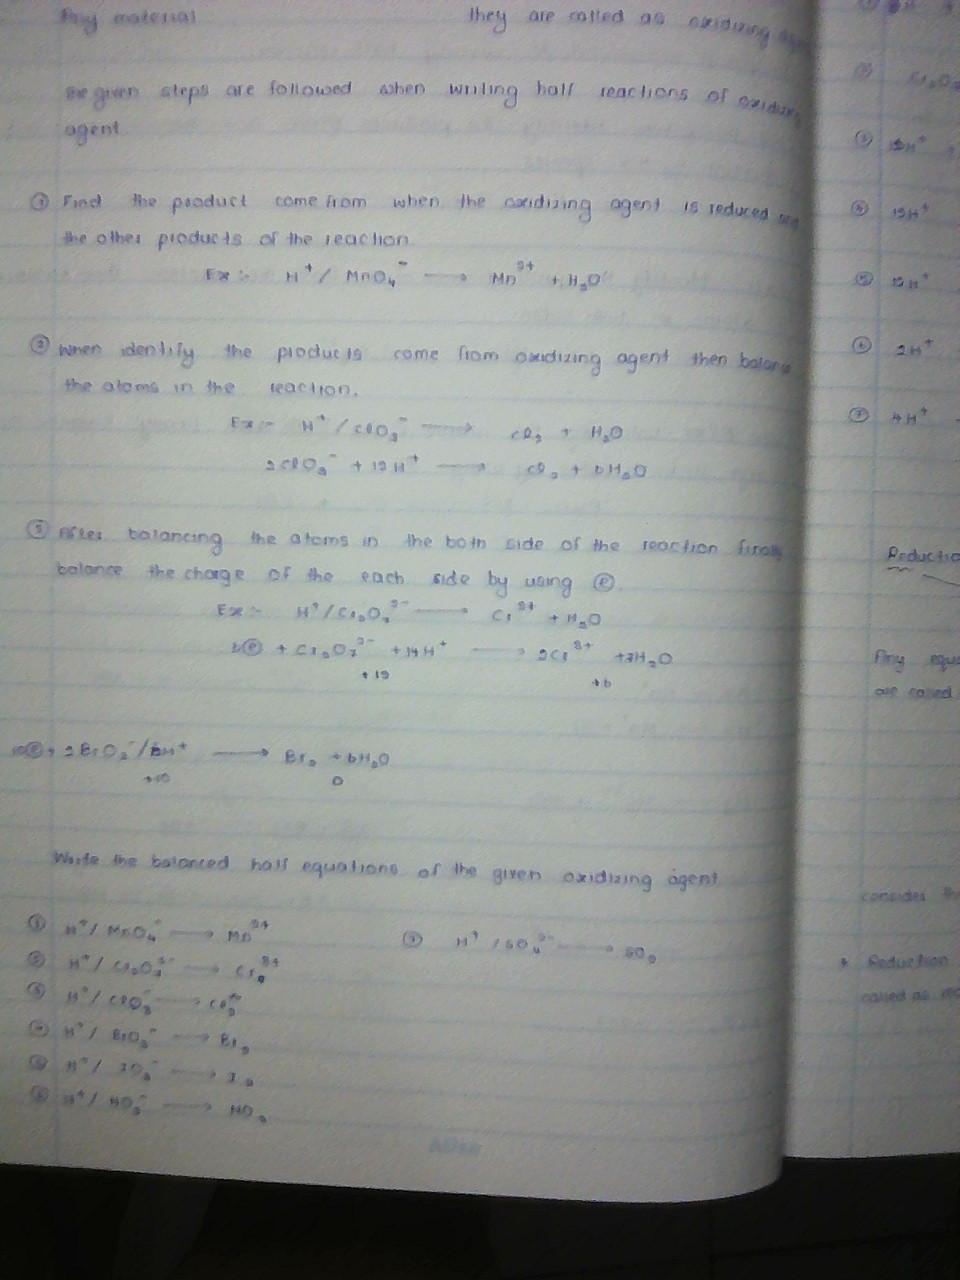 Any material they are called as oxidizing
the given steps are followed when writing half reactions of oxidizing
agent
① Find the product come from when the oxidizing agent is reduced and
the other products of the reaction
Ex :- H⁺ / MnO₄⁻ → Mn²⁺ + H₂O
② When identify the products come from oxidizing agent then balance
the atoms in the reaction.
Ex :- H⁺ / ClO₃⁻ → Cl₂ + H₂O
2ClO₃⁻ + 12H⁺ → Cl₂ + 6H₂O
③ After balancing the atoms in the both side of the reaction finally
balance the charge of the each side by using ⓔ.
Ex :- H⁺/Cr₂O₇²⁻ → Cr³⁺ + H₂O
6ⓔ + Cr₂O₇²⁻ + 14H⁺ → 2Cr³⁺ + 7H₂O
+12 +6
10ⓔ + 2BrO₃⁻/12H⁺ → Br₂ + 6H₂O
+10 0
Write the balanced half equations of the given oxidizing agent
① H⁺/ MnO₄⁻ → Mn²⁺
② H⁺/ Cr₂O₇²⁻ → Cr₂³⁺
③ H⁺/ ClO₃⁻ → Cl₂
④ H⁺/ BrO₃⁻ → Br₂
⑤ H⁺/ IO₃⁻ → I₂
⑥ H⁺/ NO₃⁻ → NO₂
⑦ H⁺ / SO₄²⁻ → SO₂
② Cr₂O
③ 12H⁺
④ 12H⁺
⑤ 12H⁺
⑥ 2H⁺
⑦ 4H⁺
Reductio
Any equa
are called
consider th
* Reduction
called as